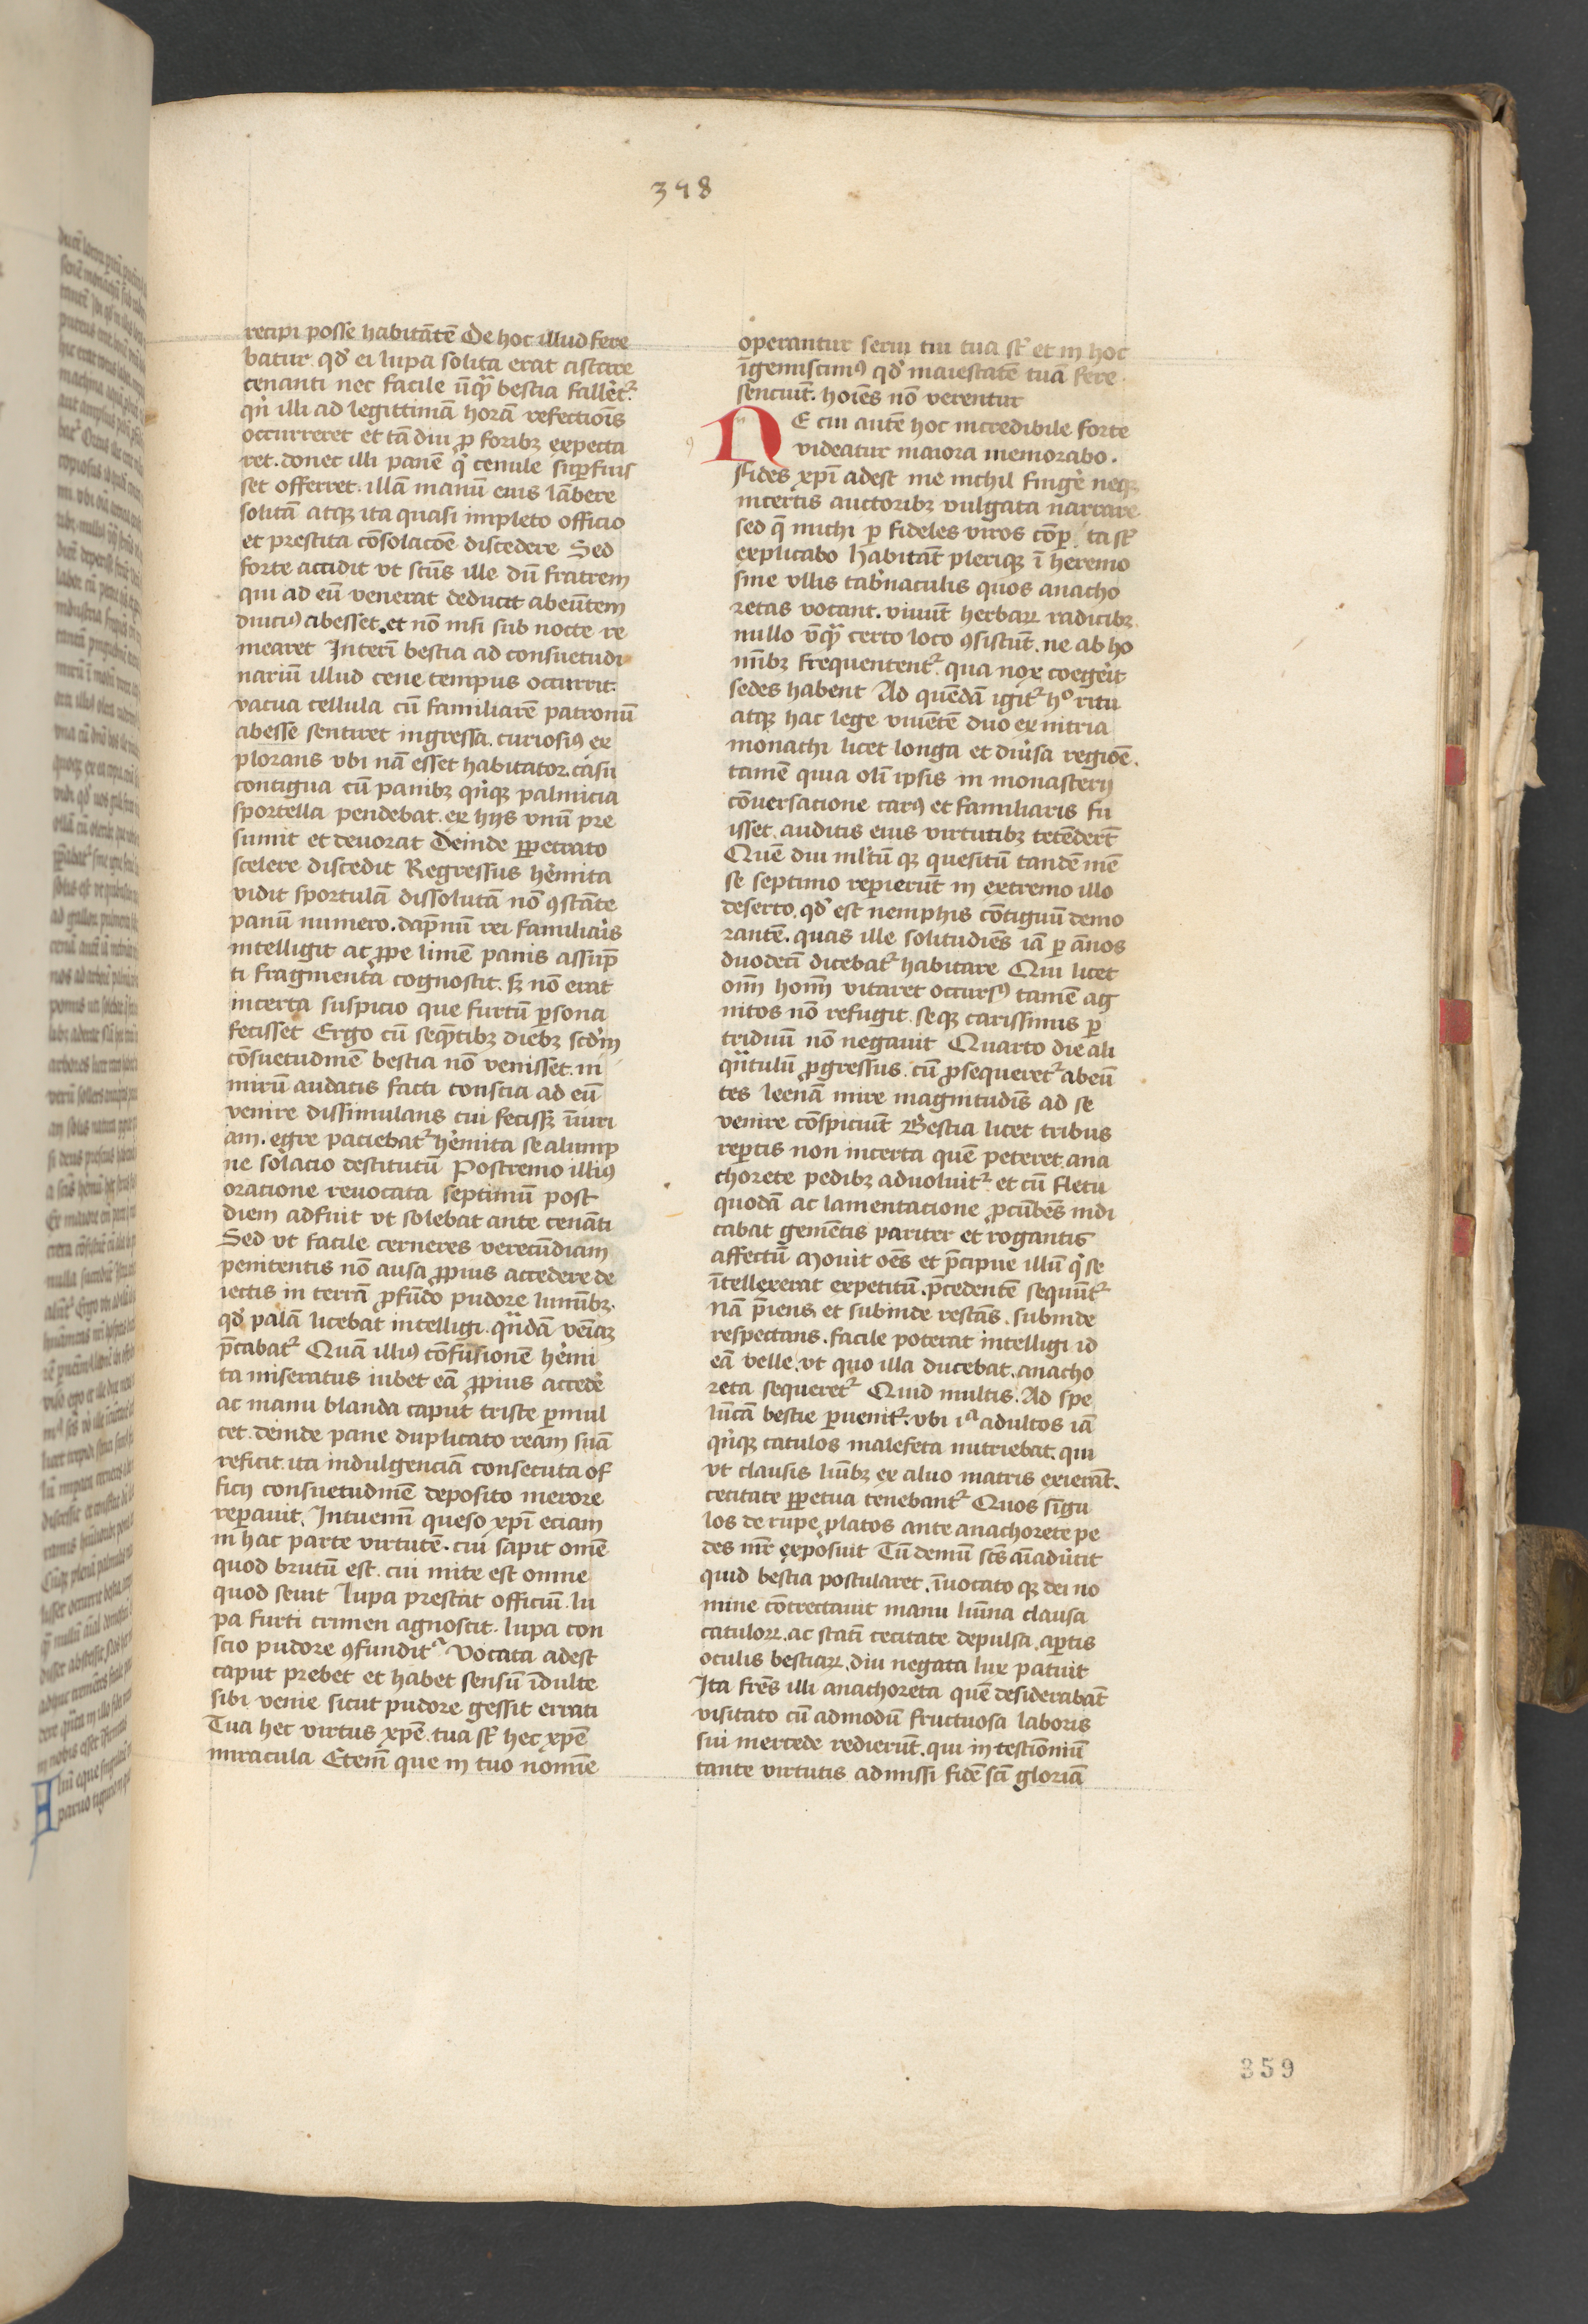 398
recipi posse habitātē De hoc illud fere
batur qđ ei lupa solita erat astare
cenanti nec facile ūqꝫ bestia fallēt᷑
qn̄ illi ad legittimā horā refectiōis
occurreret et tā diu ꝓ foribꝫ expecta
ret. donec illi panē q̄ cenule suꝑfuis
set offerret. illā manū eius lābere
solitā atqꝫ ita quasi impleto officio
et prestita cōsolacōe discedere Sed
forte accidit vt scūs ille dū fratrem
qui ad eū venerat deducit abeūtem
diuciꝰ abesset. et nō nisi sub nocte re
mearet Interī bestia ad consuetudi
nariū illud cene tempus occurrit.
vacua cellula cū familiarē patronū
abesse sentiret ingressa. curiosiꝰ ex
plorans vbi nā esset habitator. casu
contigua cū panibꝫ qn̄qꝫ palmicia
sportella pendebat. ex hijs vnū pre
sumit et deuorat Deinde ꝑpetrato
scelere discedit Regressus hēmita
vidit sportulā dissolutā nō ꝯstāte
panū numero. dāpnū rei familiaris
intelligit ac ꝓpe limē panis assūp
ti fragmenta cognoscit. sꝫ nō erat
incerta suspicio que furtū ꝑsona
fecisset Ergo cū seqn̄tibꝫ diebꝫ scd̄m
cōsuetudinē bestia nō venisset. ni
mirū audacis facti conscia ad eū
venire dissimulans cui fecissꝫ īiuri
am. egre paciebat᷑ hēmita se alump
ne solacio destitutū Postremo illiꝰ
oratione reuocata septimū post
diem adfuit vt solebat ante cenāti
Sed vt facile cerneres verecūdiam
penitentis nō ausa ꝓpius accedere de
iectis in terrā ꝓfūdo pudore luminibꝫ.
qđ palā licebat intelligi. qn̄dā veniā
p̄cabat᷑ Quā illiꝰ cōfusionē hēmi
ta miseratus iubet eā ꝓpius accedē
ac manu blanda caput triste ꝑmul
cet. deinde pane duplicato ream suā
reficit. ita indulgenciā consecuta of
ficij consuetudinē deposito merore
reꝑauit. Intuemī queso xp̄i eciam
in hac parte virtutē. cui sapit omē
quod brutū est. cui mite est omne
quod seuit Lupa prestat officiū. lu
pa furti crimen agnoscit. lupa con
scio pudore ꝯfundit᷑ Vocata adest
caput prebet et habet sensū īdulte
sibi venie sicut pudore gessit errati
Tua hec virtus xp̄e. tua sūt hec xp̄e
miracula Etenī que in tuo nomīe
operantur serui tui tua sūt et in hoc
īgemiscimꝰ qđ maiestatē tuā fere
senciūt. hoīes nō verentur
NE cui autē hoc incredibile forte
videatur maiora memorabo.
Fides xp̄i adest me nichil fingē neqꝫ
incertis auctoribꝫ vulgata narrare
sed q̄ michi ꝑ fideles viros cōꝑ ta sūt
explicabo Habitāt pleriqꝫ ī heremo
sine vllis tabn̄aculis quos anacho
retas vocant. viuūt herbaꝝ radicibꝫ
nullo ūqꝫ certo loco ꝯsistūt. ne ab ho
mībꝫ frequentent᷑. qua nox coegēit
sedes habent Ad quēdā igit᷑ hº ritu
atqꝫ hac lege viuētē duo ex nitria
monachi licet longa et diūsa regiōe.
tamē quia olī ipsis in monasterij
cōuersatione carꝰ et familiaris fu
isset. auditis eius virtutibꝫ tetēderūt
Quē diu ml̄tū qꝫ quesitū tandē mē
se septimo reꝑierūt in extremo illo
deserto. qđ est nemphis cōtiguū demo
rantē. quas ille solitudīes iā ꝑ ānos
duodecī dicebat᷑ habitare Qui licet
omī homī vitaret occursꝰ tamē ag
nitos nō refugit. seqꝫ carissimis ꝑ
triduū nō negauit Quarto die ali
qn̄tulū ꝓgressus. cū ꝓsequeret᷑ abeū
tes leenā mire magnitudīs ad se
venire cōspiciūt Bestia licet tribus
reꝑtis non incerta quē peteret. ana
chorete pedibꝫ aduoluit᷑ et cū fletu
quodā ac lamentacione ꝓcūbēs indi
cabat gemētis pariter et rogantis
affectū Mouit oēs et p̄cipue illū q̄ se
ītellexerat expetitū. p̄cedentē sequūt᷑
Nā p̄iens et subinde restās. subinde
respectans. facile poterat intelligi id
eā velle. vt quo illa ducebat. anacho
reta sequeret᷑ Quid multis. Ad spe
lūcā bestie ꝑuenit᷑. vbi iª adultos iā
qn̄qꝫ catulos malefeta nutriebat. qui
vt clausis luībꝫ ex aluo matris exierāt.
cecitate ꝑpetua tenebant᷑ Quos sīgu
los de rupe ꝓlatos ante anachorete pe
des mr̄ exposuit Tū demū scūs aīaduertit
quid bestia postularet. īuocato qꝫ dei no
mine cōtrectauit manu lumīa clausa
catuloꝝ. ac statī cecitate depulsa. aꝑtis
oculis bestiaꝝ. diu negata lux patuit
Ita frēs illi anachoreta quē desiderabāt
visitato cū admodū fructuosa laboris
sui mercede redierūt. qui in testiōniū
tante virtutis admissi fidē scī gloriā
359